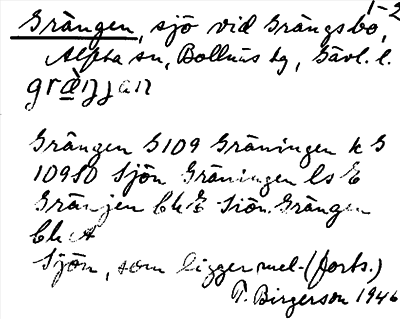 1-2
Grängen, sjö vid Grängsbo,
Alfta sn, Bollnäs tg, Gävl. l.
Grängen G109 Gräningen k G
10980 Sjön Gräningen ls E
Gränjen bk E Siön Grängen
bk A
Sjön, som ligger mel- (forts.)
T. Birgerson 1946